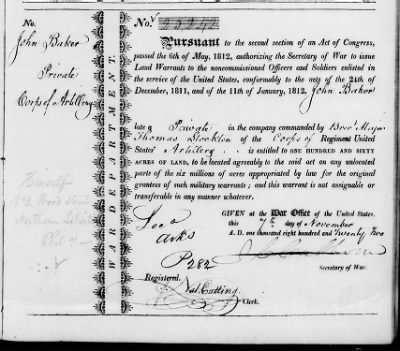 No.
John Baker
Private
Corps of Artillery
WAR DEPARTMENT.
No. 25242
Pursuant to the second section of an Act of Congress,
passed the 6th of May, 1812, authorizing the Secretary of War to issue
Land Warrants to the noncommissioned Officers and Soldiers enlisted in
the service of the United States, conformably to the acts of the 24th of
December, 1811, and of the 11th of January, 1812, John Baker
late a Private in the company commanded by Brev.t Major
Thomas Stockton of the Corps of Regiment United
States' Artillery is entitled to ONE HUNDRED AND SIXTY
ACRES OF LAND, to be located agreeably to the said act on any unlocated
parts of the six millions of acres appropriated by law for the original
grantees of such military warrants; and this warrant is not assignable or
transferable in any manner whatever.
GIVEN at the War Office of the United States,
this 7th day of November
A. D. one thousand eight hundred and Twenty Two
J C Calhoun
Secretary of War.
Arks
P 282
Registered.
Nat. Cutting
Clerk.
Himself
Wood Street
Northern
Phil